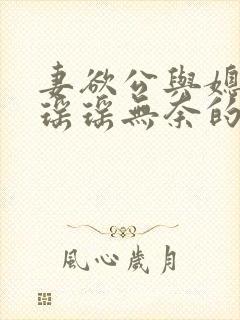 妻欲公與媳
瑶瑶無奈的
風心歲月